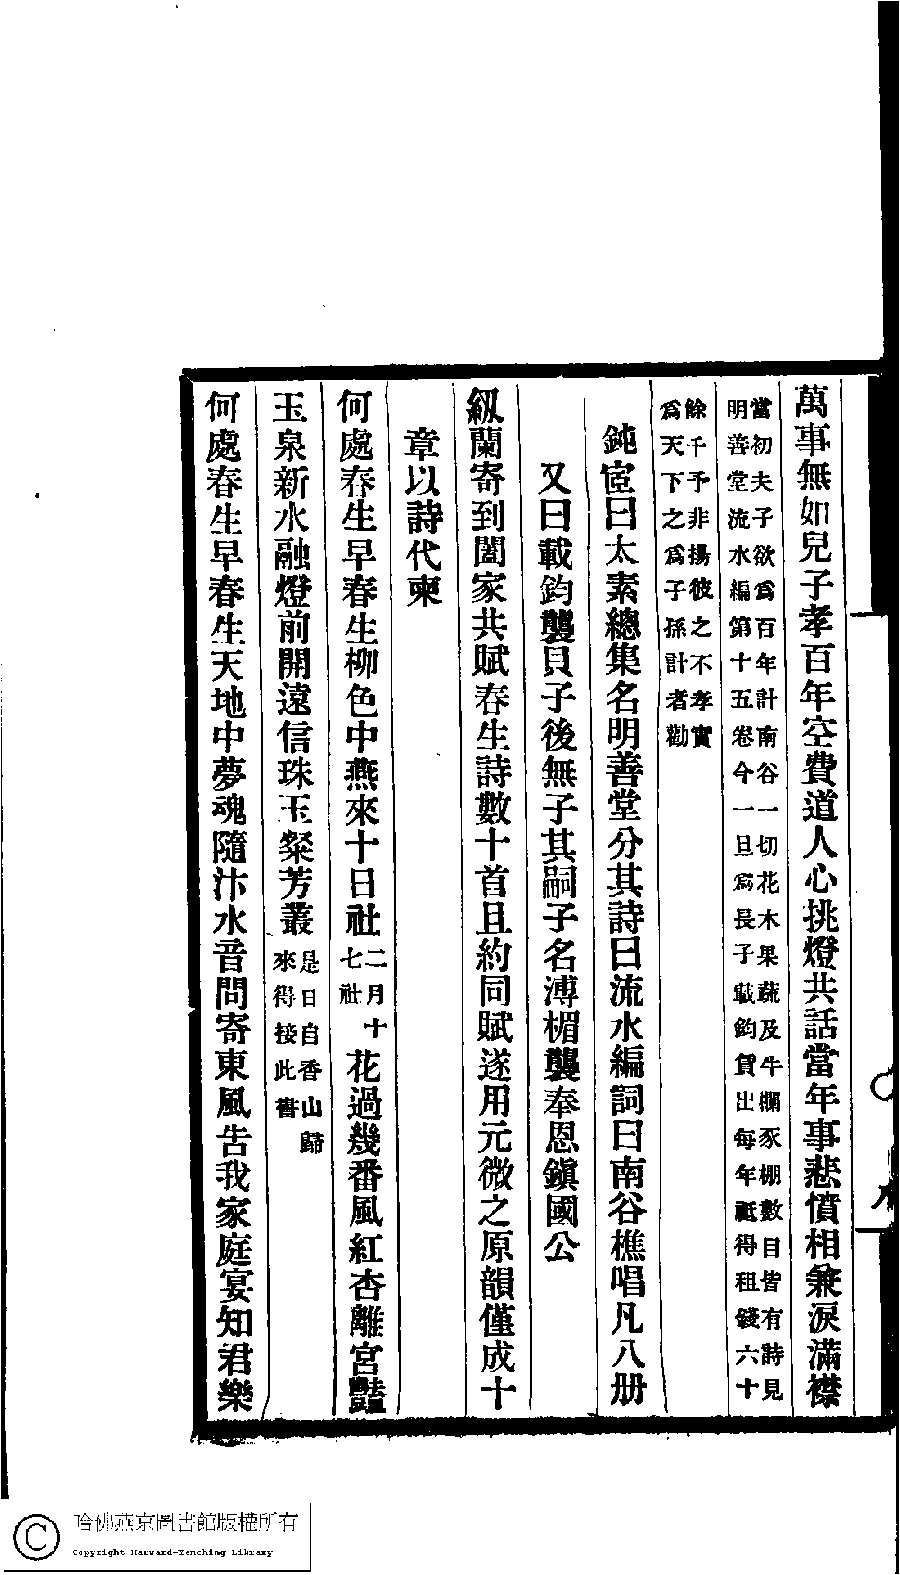 萬事無如兒子孝百年空費道人心挑燈共話當年事悲憤相兼淚滿襟
當初夫子欲爲百年計南谷一切花木果蔬及牛欄豕棚數目皆有詩見
明善堂流水編第十五卷今一旦爲長子載鈞賃出每年祗得租錢六十
餘千予非揚彼之不孝實
爲天下之爲子孫計者勸
鈍宧曰太素總集名明善堂分其詩曰流水編詞曰南谷樵唱凡八册
又曰載鈞襲貝子後無子其嗣子名溥楣襲奉恩鎭國公
紉蘭寄到闔家共賦春生詩數十首且約同賦遂用元微之原韻僅成十
章以詩代柬
何處春生早春生柳色中燕來十日社二月十七社花過幾番風紅杏離宮豔
玉泉新水融燈前開遠信珠玉粲芳叢是日自香山歸來得接此書
何處春生早春生天地中夢魂隨汴水音問寄東風告我家庭宴知君樂
哈佛燕京圖書館版權所有
Copyright Harvard-Yenching Library